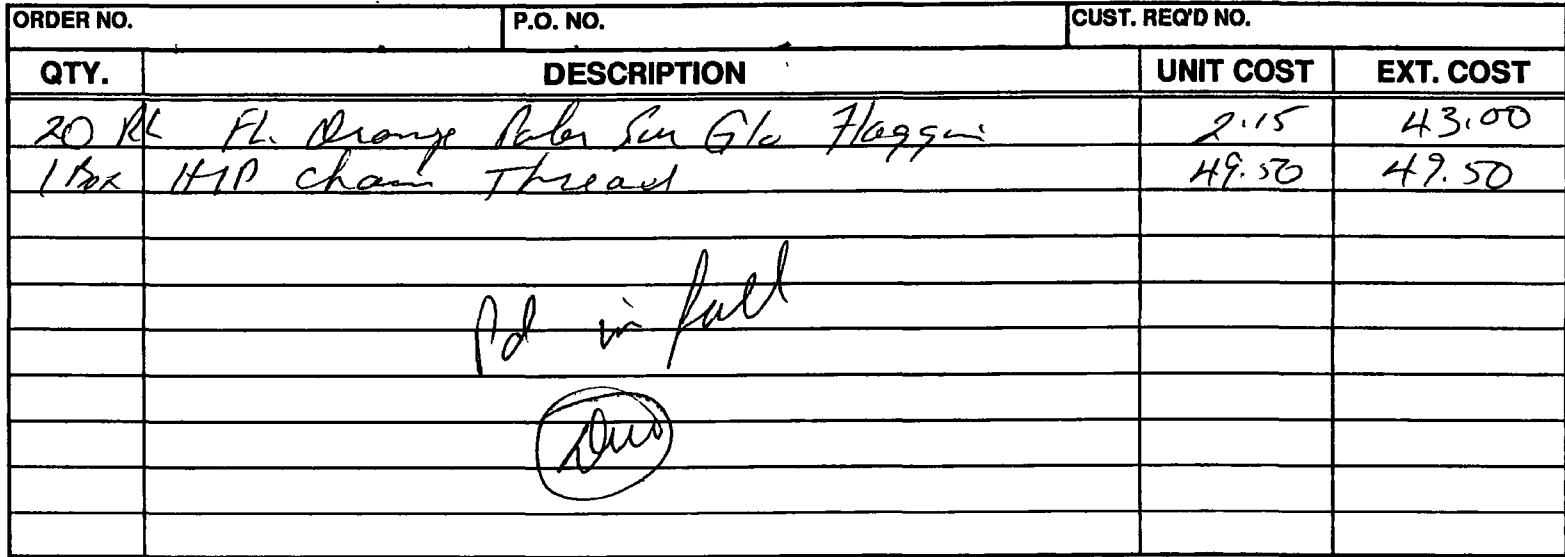 ORDER NO. P.O. NO. CUST. REQ'D NO.
QTY. DESCRIPTION UNIT COST EXT. COST
20 RL FL. Orange Glo Flaggin 2.15 43.00
1 Box Chain Thread 49.50 49.50
Pd in full